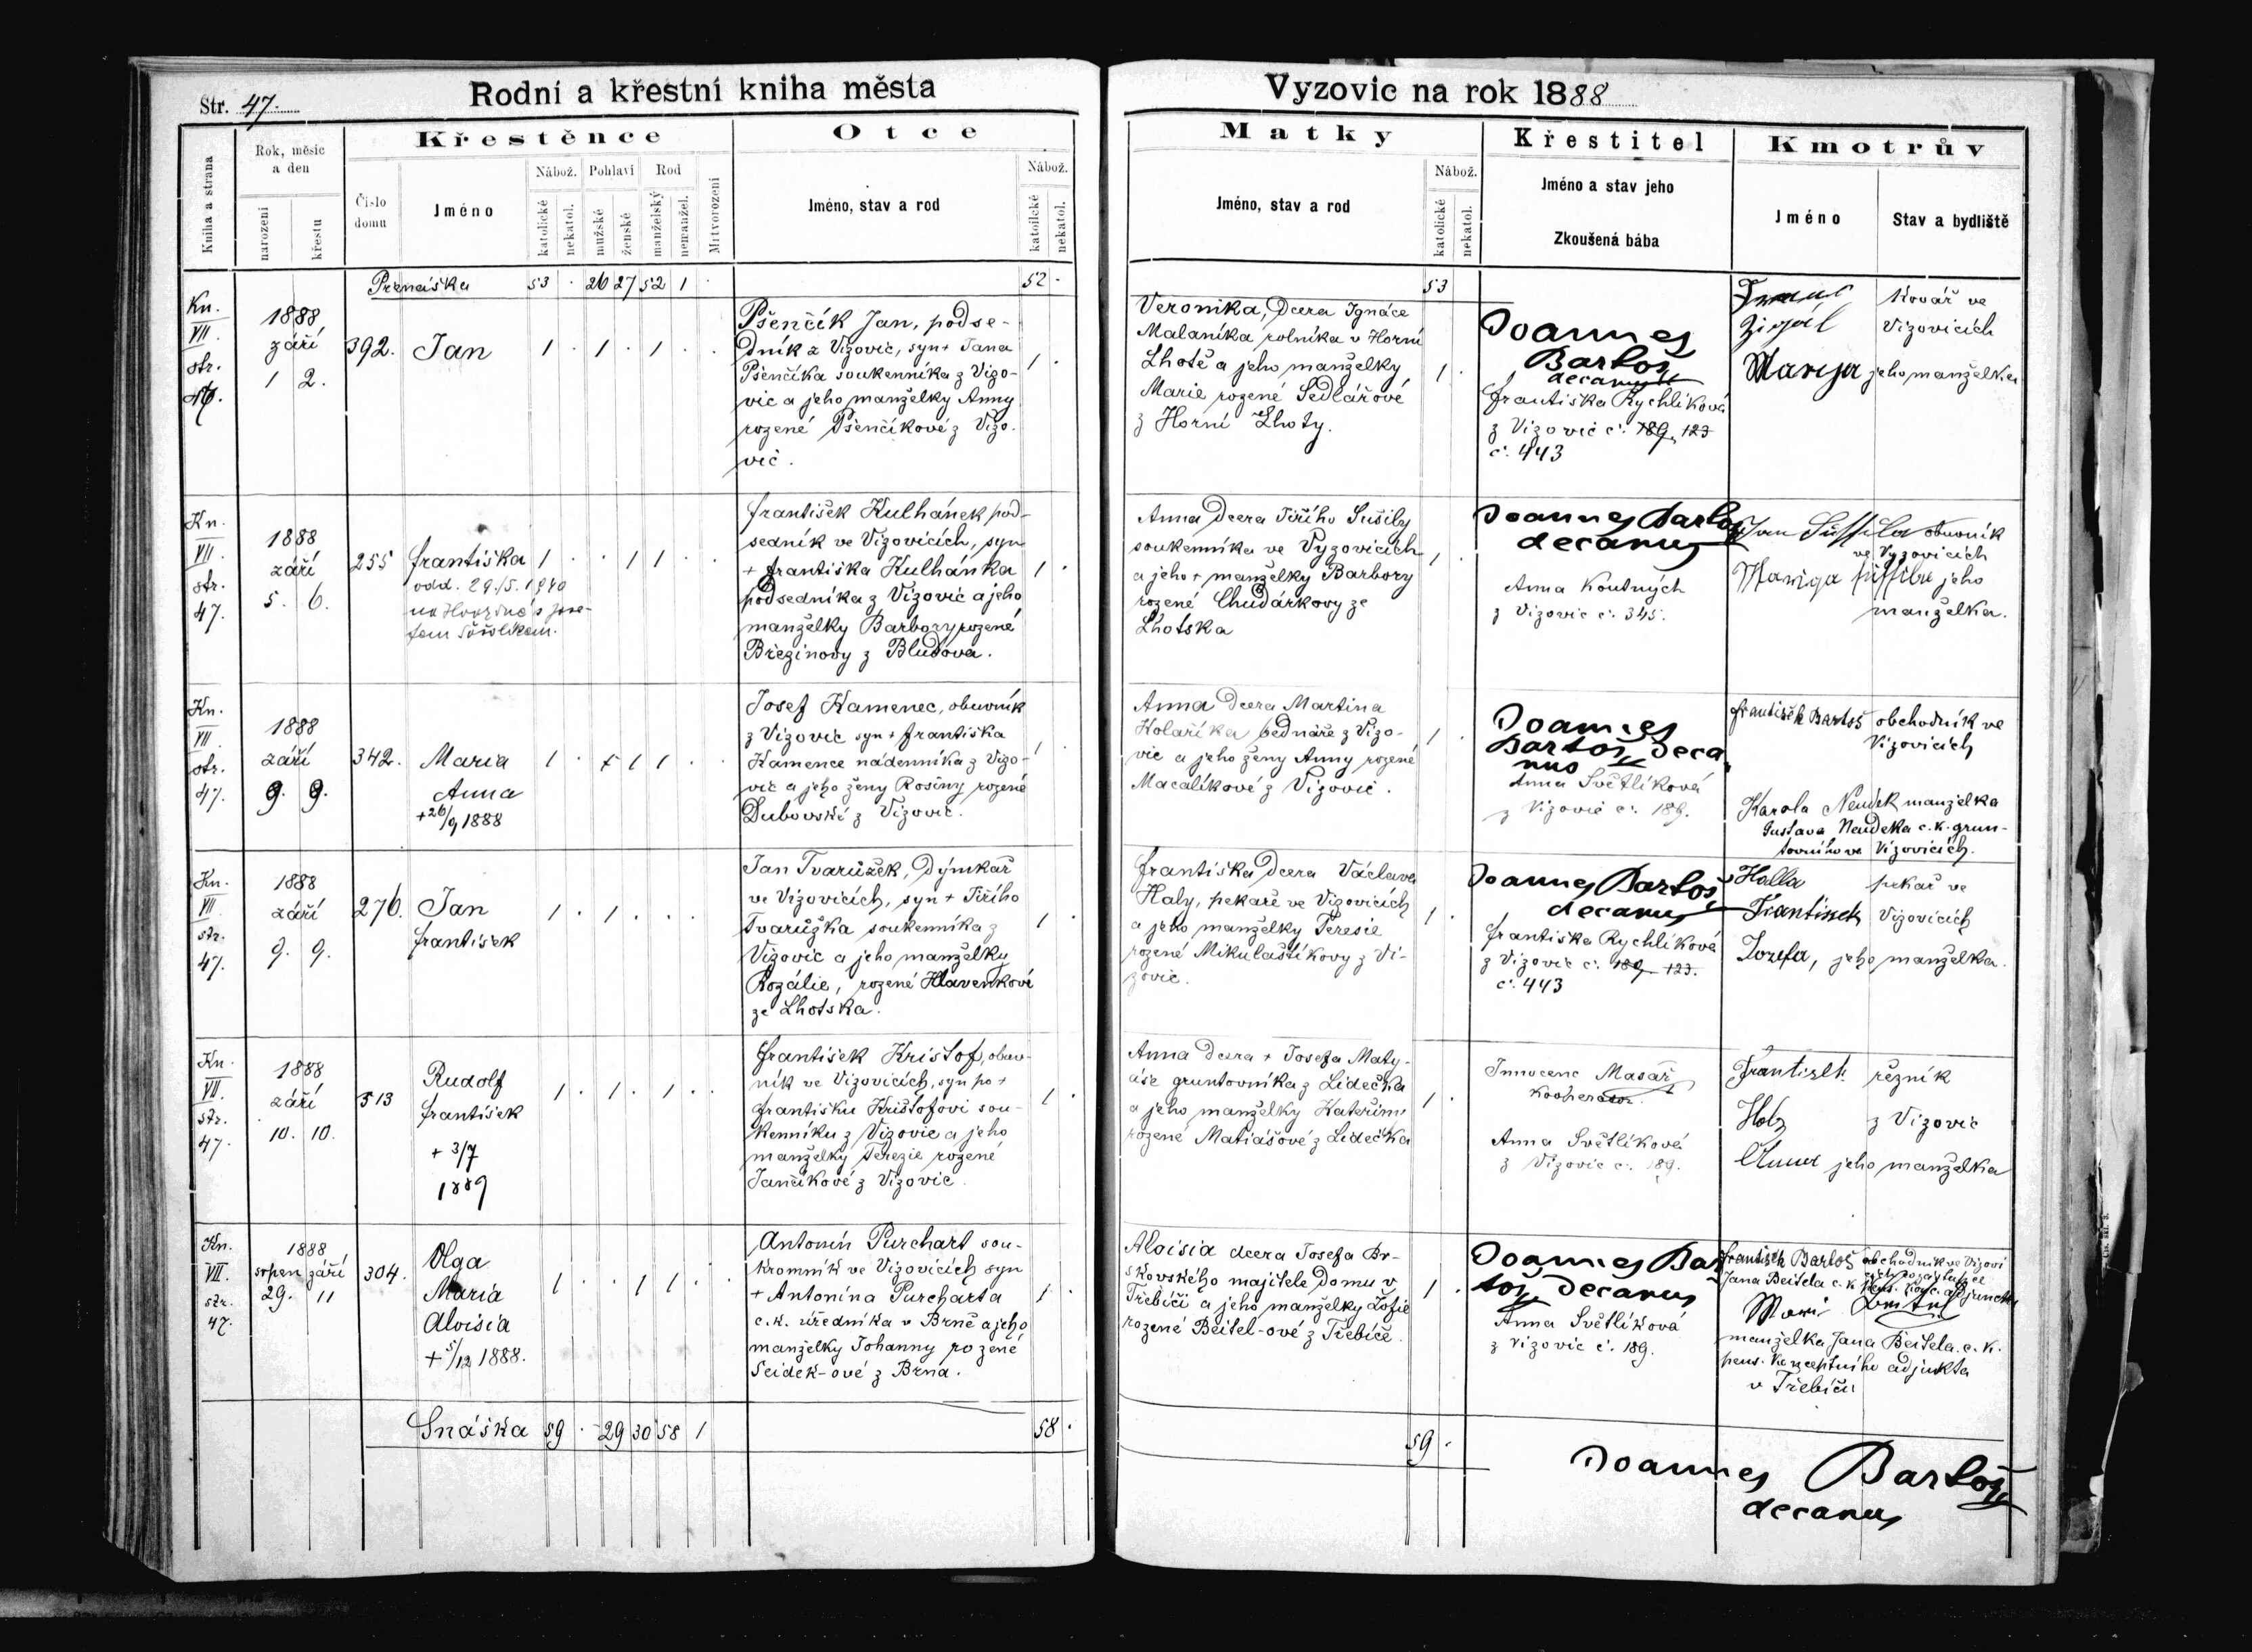 Str. 47.
Rodní a křestní kniha města
Vyzovic na rok 1888
Kniha a strana
Rok, měsíc
a den
narození
křestu
Křestěnce
Číslo
domu
Jméno
Nábož.
katolické
nekatol.
Pohlaví
mužské
ženské
Rod
manželský
nemanžel.
Mrtvorození
Otce
Jméno, stav a rod
Nábož.
katolické
nekatol.
Matky
Jméno, stav a rod
Nábož.
katolické
nekatol.
Křestitel
Jméno a stav jeho
Zkoušená bába
Kmotrův
Jméno
Stav a bydliště
Přenáška 53 · 26 27 52 1 ·
52 ·
53
Kn.
VII.
str.
47.
1888
září
1 2.
392.
Jan
1 · 1 · 1 · ·
Pšenčík Jan, podse-
dník z Vizovic, syn + Jana
Pšenčíka soukenníka z Vizo-
vic a jeho manželky Anny
rozené Pšenčíkové z Vizo-
vic.
1 ·
Veronika, dcera Ignáce
Malaníka rolníka v Horní
Lhotě a jeho manželky
Marie rozené Sedlářové
z Horní Lhoty.
1 ·
Joannes
Bartoš
decanus
Františka Rychlíková
z Vizovic č. 189, 123
č. 443
Kovář ve
Vizovicích
Marija jeho manželka
Kn.
VII.
str.
47.
1888
září
5. 6.
255
Františka
odd. 29./5. 1940
na Hvozdné s Jose-
fem
1 · · 1 1 · ·
František Kulhánek pod-
sedník ve Vizovicích, syn
+ Františka Kulhánka
podsedníka z Vizovic a jeho
manželky Barbory rozené
Březinovy z Bludova.
1 ·
Anna dcera Jiřího Sušily
soukenníka ve Vyzovicích
a jeho + manželky Barbory
rozené Chudárkovy ze
Lhotska
1 ·
Joannes Bartoš
decanus
Anna Koutných
z Vizovic č. 345.
Jan Sušsila obuvník
ve Vyzovicích
Mariga sušsila jeho
manželka.
Kn.
VII
str.
47.
1888
září
9. 9.
342.
Maria
Anna
+ 26/9 1888
1 · 1 1 · ·
Josef Kamenec, obuvník
z Vizovic syn + Františka
Kamence nádenníka z Vizo-
vic a jeho ženy Rosiny rozené
Dubovské z Vizovic.
1 ·
Anna dcera Martina
Kolaříka bednáře z Vizo-
vic a jeho ženy Anny rozené
Macalíkové z Vizovic.
1 ·
Joannes
Bartoš deca
nus
Anna Světlíková
z Vizovic č. 189.
František Bartoš obchodník ve
Vizovicích
Karola Neudek manželka
Gustava Neudeka c. k. grun-
tovního ve Vizovicích.
Kn.
VII
str.
47.
1888
září
9. 9.
276.
Jan
František
1 · 1 · · ·
Jan Tvarůžek, dýmkař
ve Vizovicích, syn + Jiřího
Tvarůžka soukenníka z
Vizovic a jeho manželky
Rozálie, rozené Hlavenkové
ze Lhotska.
1 ·
Františka dcera Václava
Haly, pekaře ve Vizovicích
a jeho manželky Teresie
rozené Mikulaštíkovy z Vi-
zovic.
1 ·
Joannes Bartoš
decanus
Františka Rychlíková
z Vizovic č. 189 123.
č. 443
Halla pekař ve
Frantissek Vizovicích
Jozefa, jeho manželka.
Kn.
VII.
str.
47.
1888
září
10. 10.
513
Rudolf
František
+ 3/7
1889
1 · 1 · 1 · ·
František Krištof, obuv-
ník ve Vizovicích, syn po +
Františku Krištofovi sou-
kenníku z Vizovic a jeho
manželky Terezie rozené
Jančíkové z Vizovic.
1 ·
Anna dcera + Josefa Maty-
áše gruntovníka z Lidečka
a jeho manželky Kateřiny
rozené Matiášové z Lidečka
1 ·
Innocenc Masař
kooperator.
Anna Světlíková
z Vizovic č. 189.
Frantisek řezník
Holz z Vizovic
Anna jeho manželka
Kn.
VII.
str.
47.
1888
srpen září
29. 11
304.
Olga
Maria
Aloisia
+ 5/12 1888.
1 · · 1 1 · ·
Antonín Purchart sou-
kromník ve Vizovicích syn
+ Antonína Purcharta
c. k. úředníka v Brně a jeho
manželky Johanny rozené
Seidek-ové z Brna.
1 ·
Aloisia dcera Josefa Br-
skovského majitele domu v
Třebíči a jeho manželky Žofie
rozené Beitel-ové z Třebíče.
1 ·
Joannes Bar
toš, decanus
Anna Světlíková
z Vizovic č. 189.
František Bartoš obchodník ve Vizovi
Jana Beitela c. k. adjuncta
manželka Jana Beitela c. k.
pens. konceptního adjukta
v Třebíči
Snáška 59 · 29 30 58 1
58 ·
59 ·
Joannes Bartoš
decanus